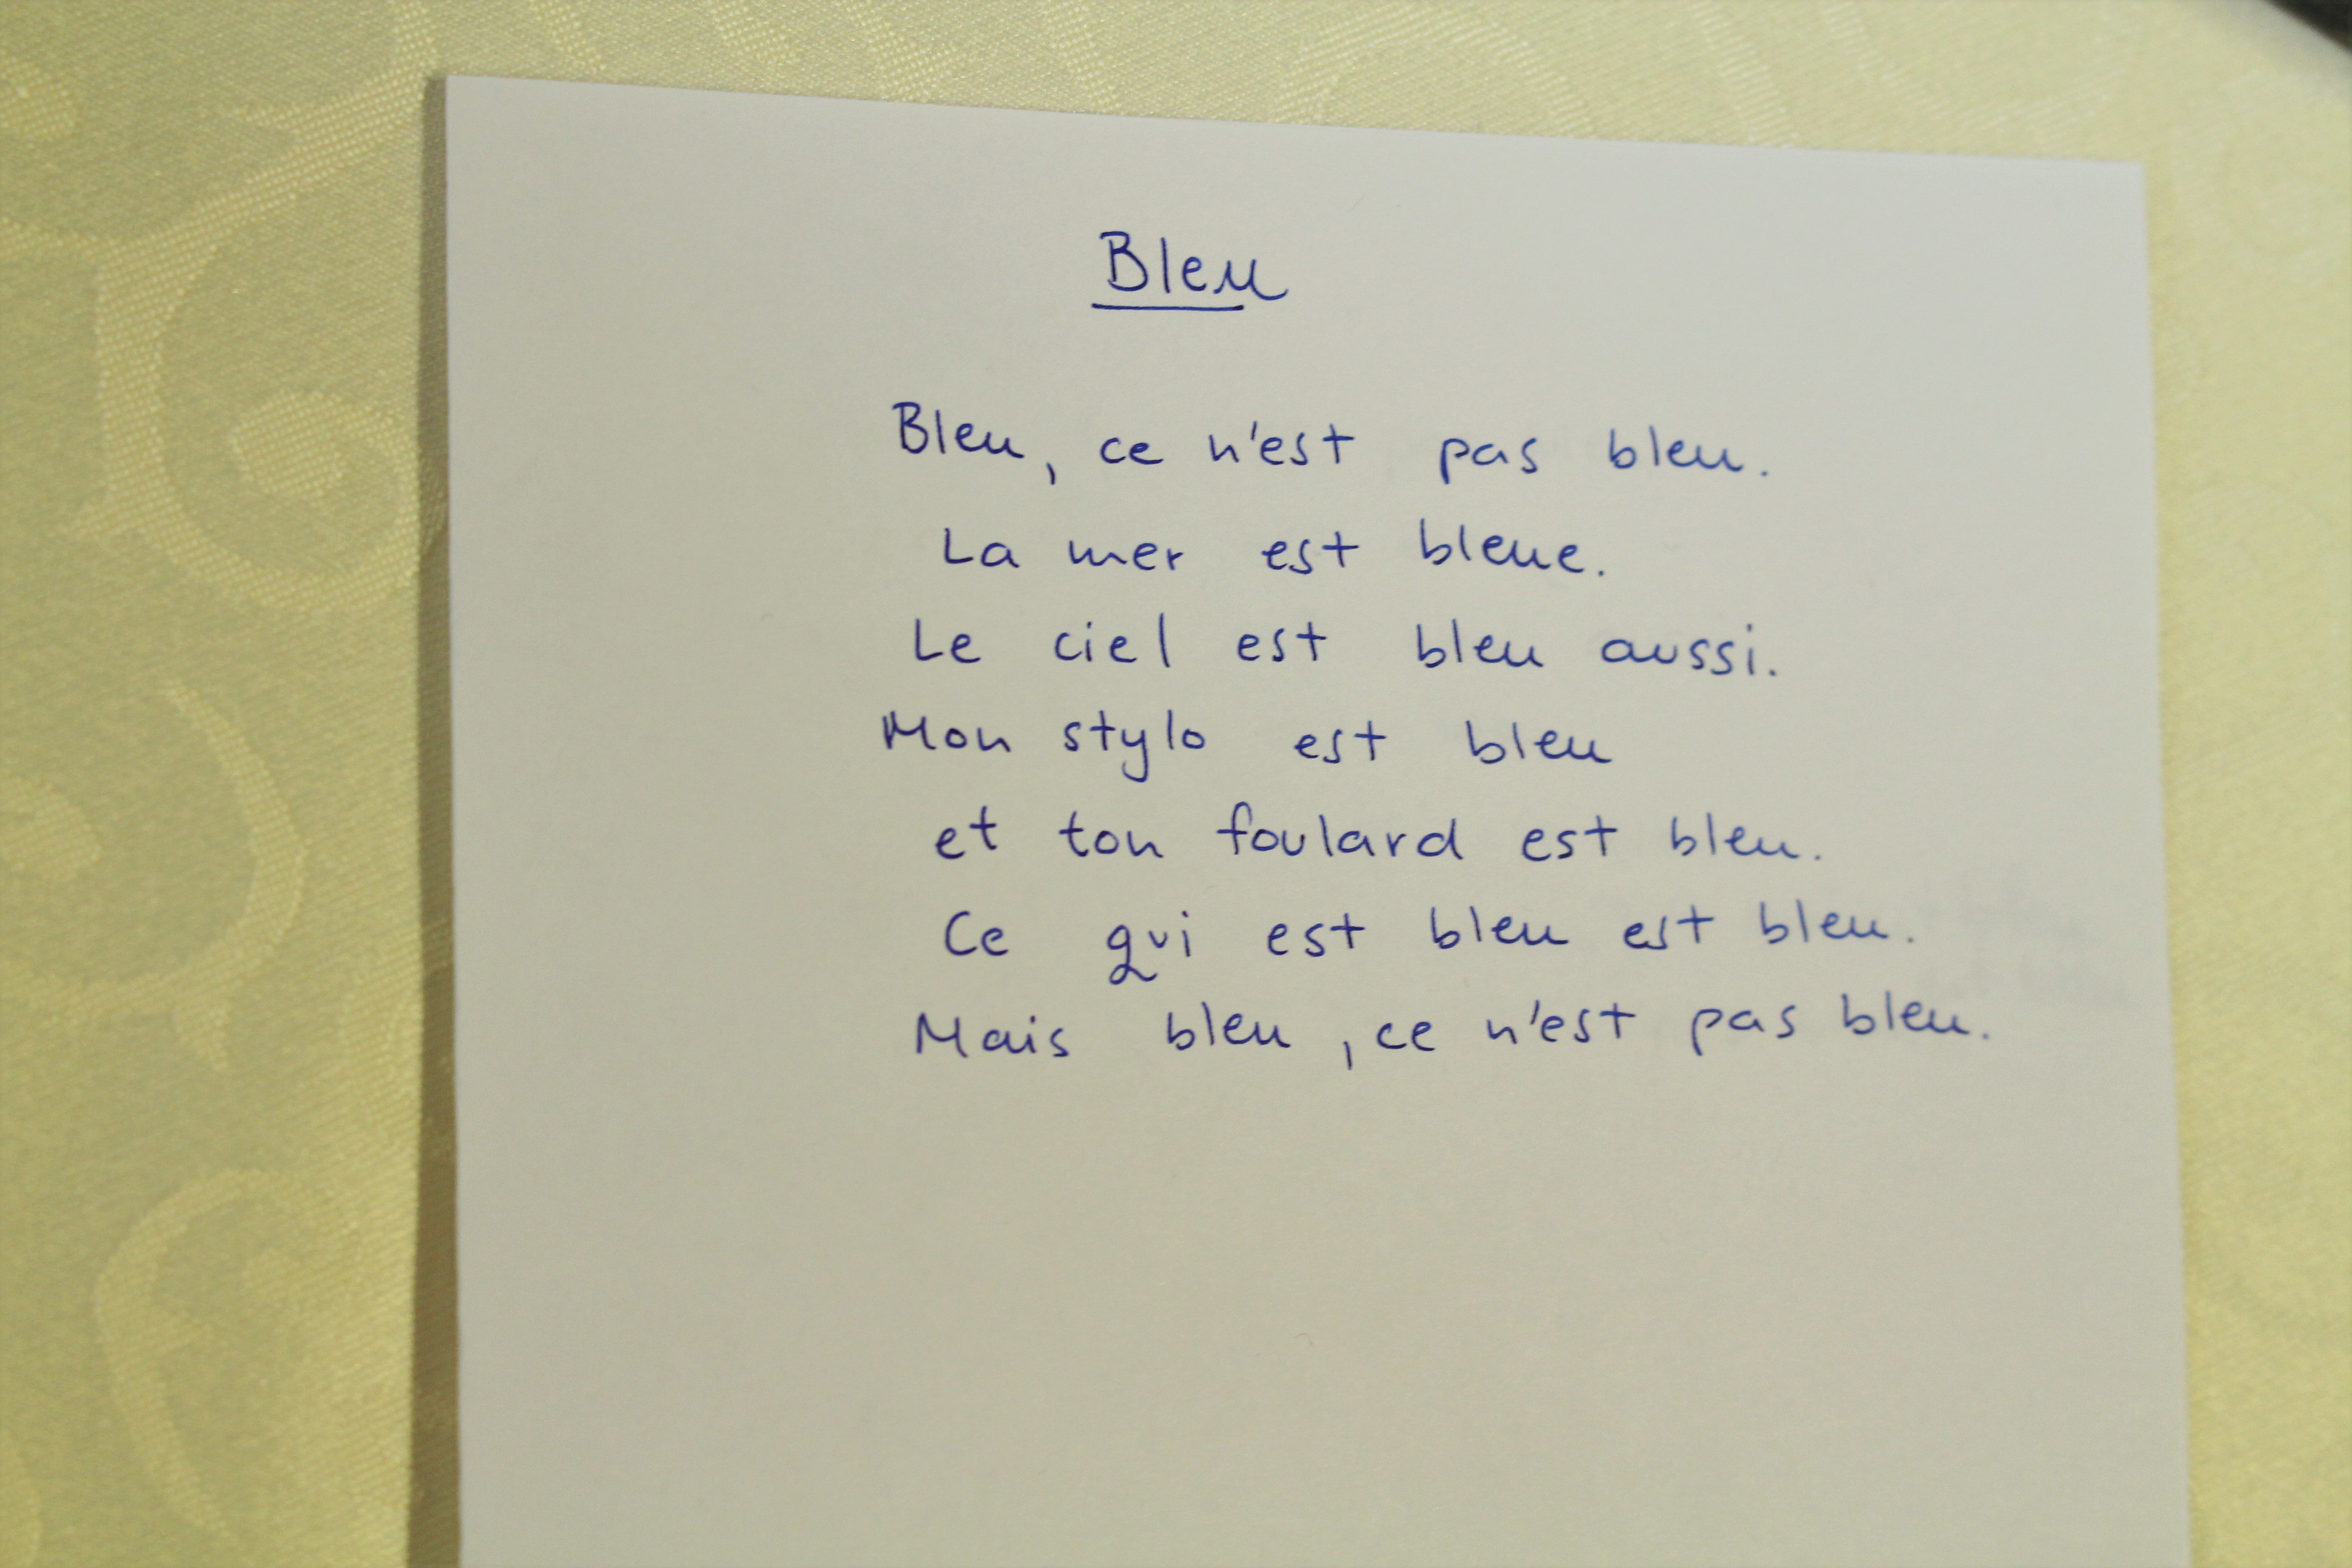 Bleu
Bleu, ce n'est pas bleu.
La mer est bleue.
Le ciel est bleu aussi.
Mon stylo est bleu
et ton foulard est bleu.
Ce qui est bleu est bleu.
Mais bleu, ce n'est pas bleu.